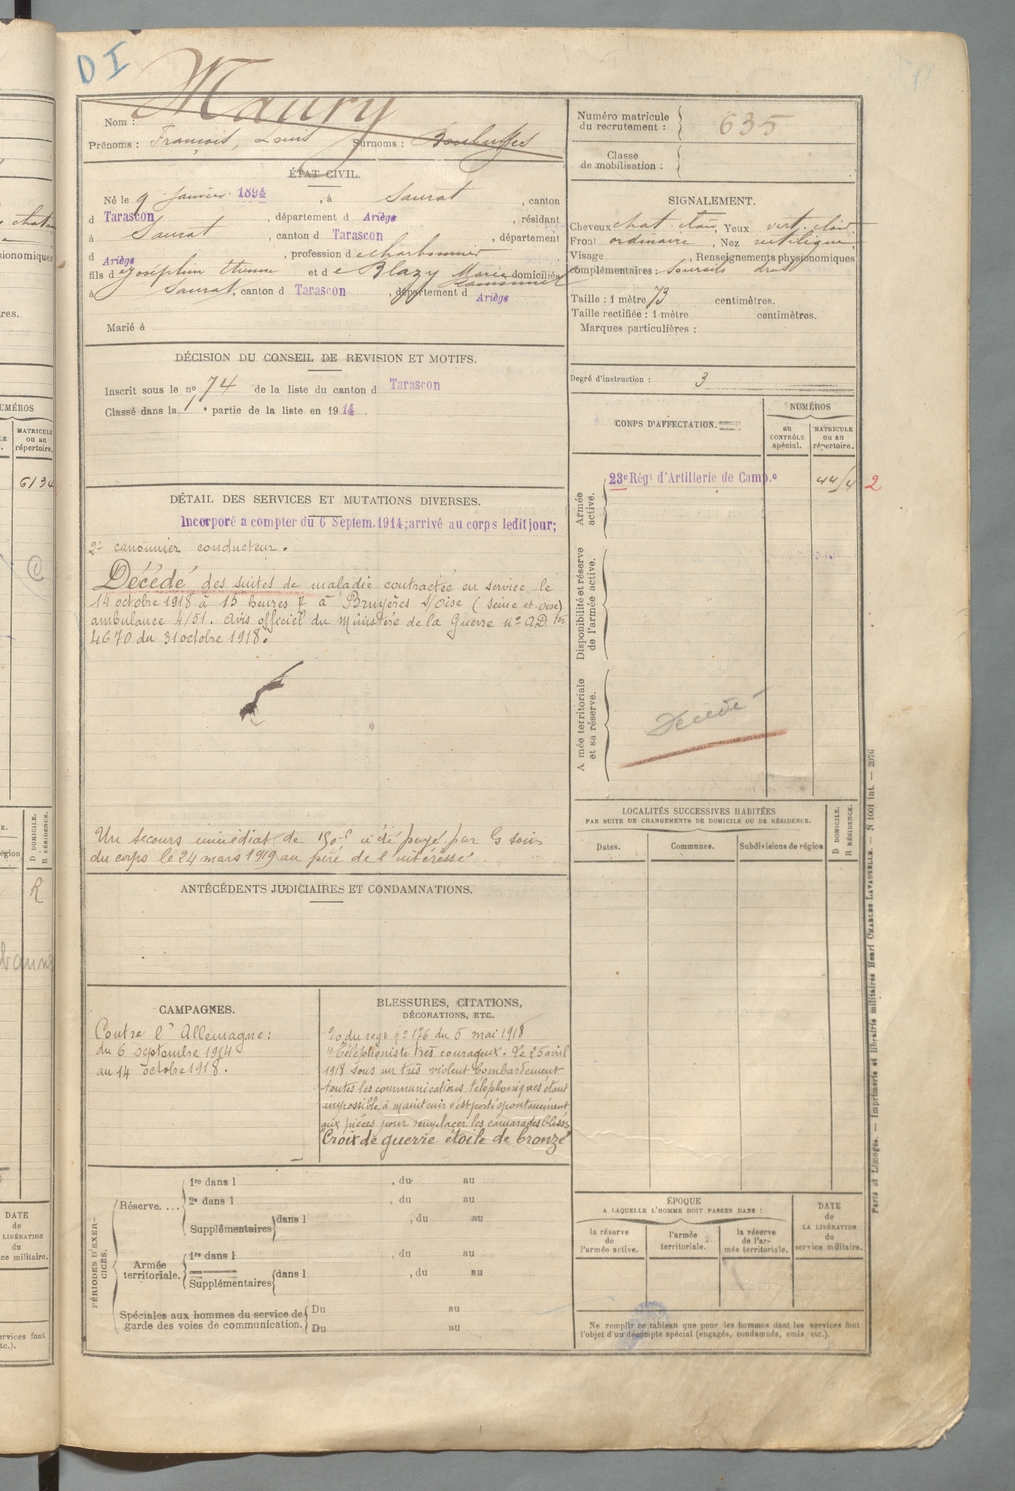 DI
Maury
Nom :
Prénoms : François, Louis Surnoms :
ÉTAT CIVIL.
Né le 9 Janvier 1894, à Saurat, canton
d Tarascon, département d Ariège, résidant
à Saurat, canton d Tarascon, département
d Ariège, profession de charbonnier
fils de Joséphin Etienne et de Blazy Marie domiciliés
à Saurat, canton d Tarascon, département d Ariège
Marié à
DÉCISION DU CONSEIL DE REVISION ET MOTIFS.
Inscrit sous le nº 74 de la liste du canton d Tarascon
Classé dans la 1º partie de la liste en 1914
DÉTAIL DES SERVICES ET MUTATIONS DIVERSES.
Incorporé a compter du 6 Septem. 1914; arrivé au corps ledit jour;
2e canonnier conducteur.
Décédé des suites de maladie contractée en service le
14 octobre 1918 à 15 heures à Bruyères s/Oise (Seine et Oise)
ambulance 4/51. Avis officiel du Ministère de la Guerre nº AD
4670 du 31 octobre 1918.
Un secours immédiat de 150f a été payé par les soins
du corps le 24 mars 1919 au père de l'intéressé
ANTÉCÉDENTS JUDICIAIRES ET CONDAMNATIONS.
CAMPAGNES.
Contre l'Allemagne:
du 6 septembre 1914
au 14 octobre 1918.
BLESSURES, CITATIONS,
DÉCORATIONS, ETC.
du regt nº 176 du 5 mai 1918
"Téléphoniste très courageux. Le 25 avril
1918 sous un très violent bombardement
toutes les communications téléphoniques étant
impossible à maintenir s'est porté spontanément
aux pièces pour remplacer les camarades blessés
Croix de guerre étoile de bronze
PÉRIODES D'EXERCICES.
Réserve....
1re dans l , du au
2e dans l , du au
Supplémentaires dans l , du au
Armée territoriale.
1re dans l , du au
Supplémentaires dans l , du au
Spéciales aux hommes du service de garde des voies de communication.
Du au
Du au
Numéro matricule du recrutement : 635
Classe de mobilisation :
SIGNALEMENT.
Cheveux chat. clair, Yeux vert clair
Front ordinaire, Nez rectiligne
Visage , Renseignements physionomiques
complémentaires : Sourcils droits
Taille : 1 mètre 73 centimètres.
Taille rectifiée : 1 mètre centimètres.
Marques particulières :
Degré d'instruction : 3
CORPS D'AFFECTATION.
NUMÉROS
au CONTRÔLE spécial.
MATRICULE ou au répertoire.
Armée active.
23e Régt d'Artillerie de Camp.e
2
Disponibilité et réserve de l'armée active.
Armée territoriale et sa réserve.
Décédé
LOCALITÉS SUCCESSIVES HABITÉES
PAR SUITE DE CHANGEMENTS DE DOMICILE OU DE RÉSIDENCE.
Dates.
Communes.
Subdivisions de région
D DOMICILE.
R RÉSIDENCE.
ÉPOQUE
A LAQUELLE L'HOMME DOIT PASSER DANS :
la réserve de l'armée active.
l'armée territoriale.
la réserve de l'armée territoriale.
DATE de LA LIBÉRATION du service militaire.
Ne remplir ce tableau que pour les hommes dont les services font
l'objet d'un décompte spécial (engagés, condamnés, omis etc.).
Paris et Limoges. — Imprimerie et librairie militaires Henri CHARLES-LAVAUZELLE. — N 1001 int. — 2076
NUMÉROS
MATRICULE
ou au
répertoire.
6134
D DOMICILE.
R RÉSIDENCE.
R
DATE
de
LA LIBÉRATION
du
service militaire.